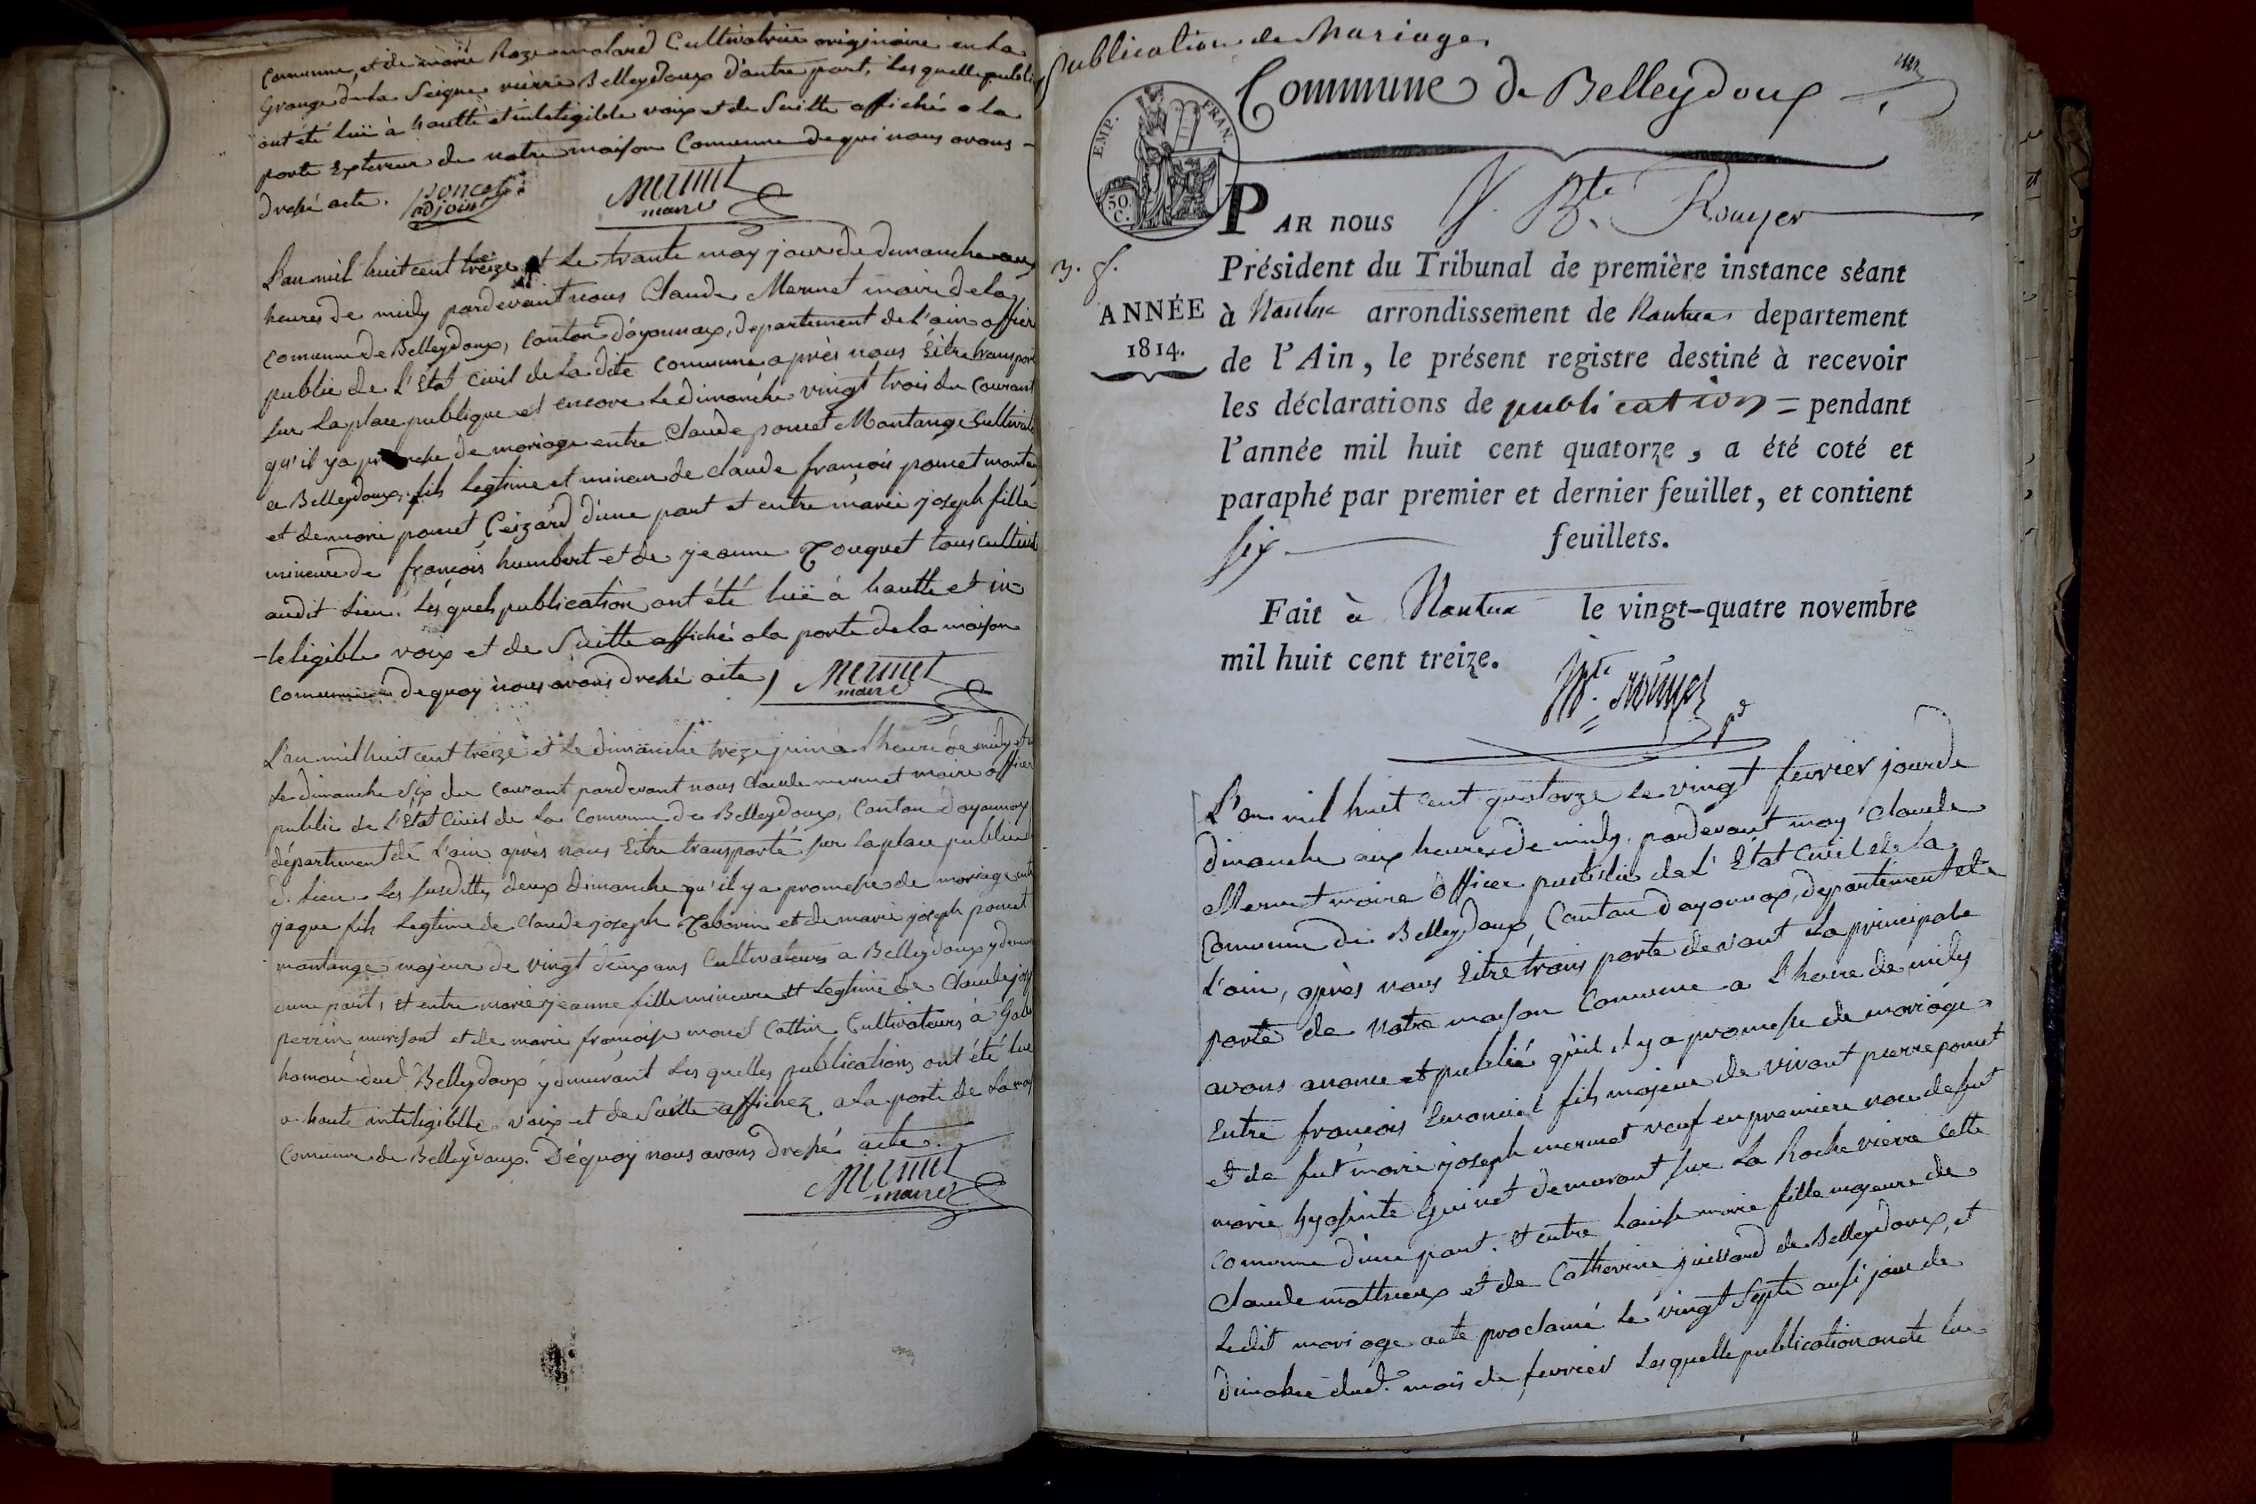 Comunne, et de marie Roze molard Cultivatrice originaire en la
Grange de la Seigne vierre Belleydoux d'autre part, les quelle publi
ont été luë à hautte et inteligible voix et de Suitte affiché a la
porte Exterieur de notre maison Comunne de qui nous avons
dressé acte. Poncet adjoint Mermet maire
L'an mil huit cent treize et le trante may jour de dimanche aux
heures de midy pardevant nous Claude Mermet maire de la
comunne de Belleydoux, canton d'oyonnax, departement de l'ain officier
public de L'Etat civil de la dite comunne après nous Eitre transporté
sur la place publique et encore le dimanche vingt trois du courant
qu'il ya de mariage entre Claude poncet Montange Cultivat
a Belleydoux, fils legtime et mineur de claude françois poncet montan
et de marie poncet Geizard d'une part et entre marie joseph fille
mineure de françois humbert et de jeanne Touquet tous cultivat
audit Lieu. Les quels publication ont été luë à hautte et in
-teligible voix et de Suitte affiché a la porte de la maison
comunne de quoy nous avons dressé acte Mermet maire
L'an mil huit cent treize et le dimanche treze juin a l'heure de midy et
le dimanche Six du courant pardevant nous claude mermet maire officier
public de L'Etat Civil de la Comunne de Belleydoux, Canton d'oyonnax
département de L'ain après nous Eitre transporté sur la place public
d. Lieu les susdittes deux dimanche qu'il y a promesse de mariage entre
jaque fils legtime de Claude joseph Tabourin et de marie joseph poncet
montange majeur de vingt deux ans Cultivateurs a Belleydoux y demeur
d'une part, et entre marie jeanne fille mineure et legtime de Claude jos
perrin murisont et de marie françoise monet Cattin Cultivateurs à
dud Belleydoux y demurant les quelles publications ont été lue
a haute inteligiblle voix et de Suitte affichez a la porte de la mai
Comunne de Belleydoux. Déquoy nous avons dressé acte.
Mermet maire
Publication de Mariage
Commune de Belleydoux
EMP. FRAN.
50. C.
PAR NOUS J. Bte. Rouyer
3. f.
Président du Tribunal de première instance séant
ANNÉE 1814.
à Nantua arrondissement de Nantua departement
de l'Ain, le présent registre destiné à recevoir
les déclarations de publication = pendant
l'année mil huit cent quatorze, a été coté et
paraphé par premier et dernier feuillet, et contient
Six feuillets.
Fait à Nantua le vingt-quatre novembre
mil huit cent treize.
Bte. Rouyer pd
L'an mil huit cent quatorze le vingt fevrier jour de
dimanche aux heures de midy, pardevant moy Claude
Mermet maire Officer public de L'Etat Civil de la
Comunne de Belleydoux, Canton d'oyonnax, departement de
L'ain, après nous Eitre trans porté devant la principale
porte de notre maison Comunne a l'heure de midy
avons anonce et publié qu'il il y a promesse de mariage
Entre françois Emanuel fils majeur de vivant pierre poncet
et de fut marie joseph mermet veuf en premiere noce de fut
marie hyasinte Guinet demurant sur la Roche vierre cette
comunne d'une part. et entre Louise marie fille majeure de
Claude mathieux et de Catherine juillard de Belleydoux, et
ledit mariage aete proclamé le vingt Septe ausi jour de
dimahce dud. mois de fevrier les quelle publication onete lue